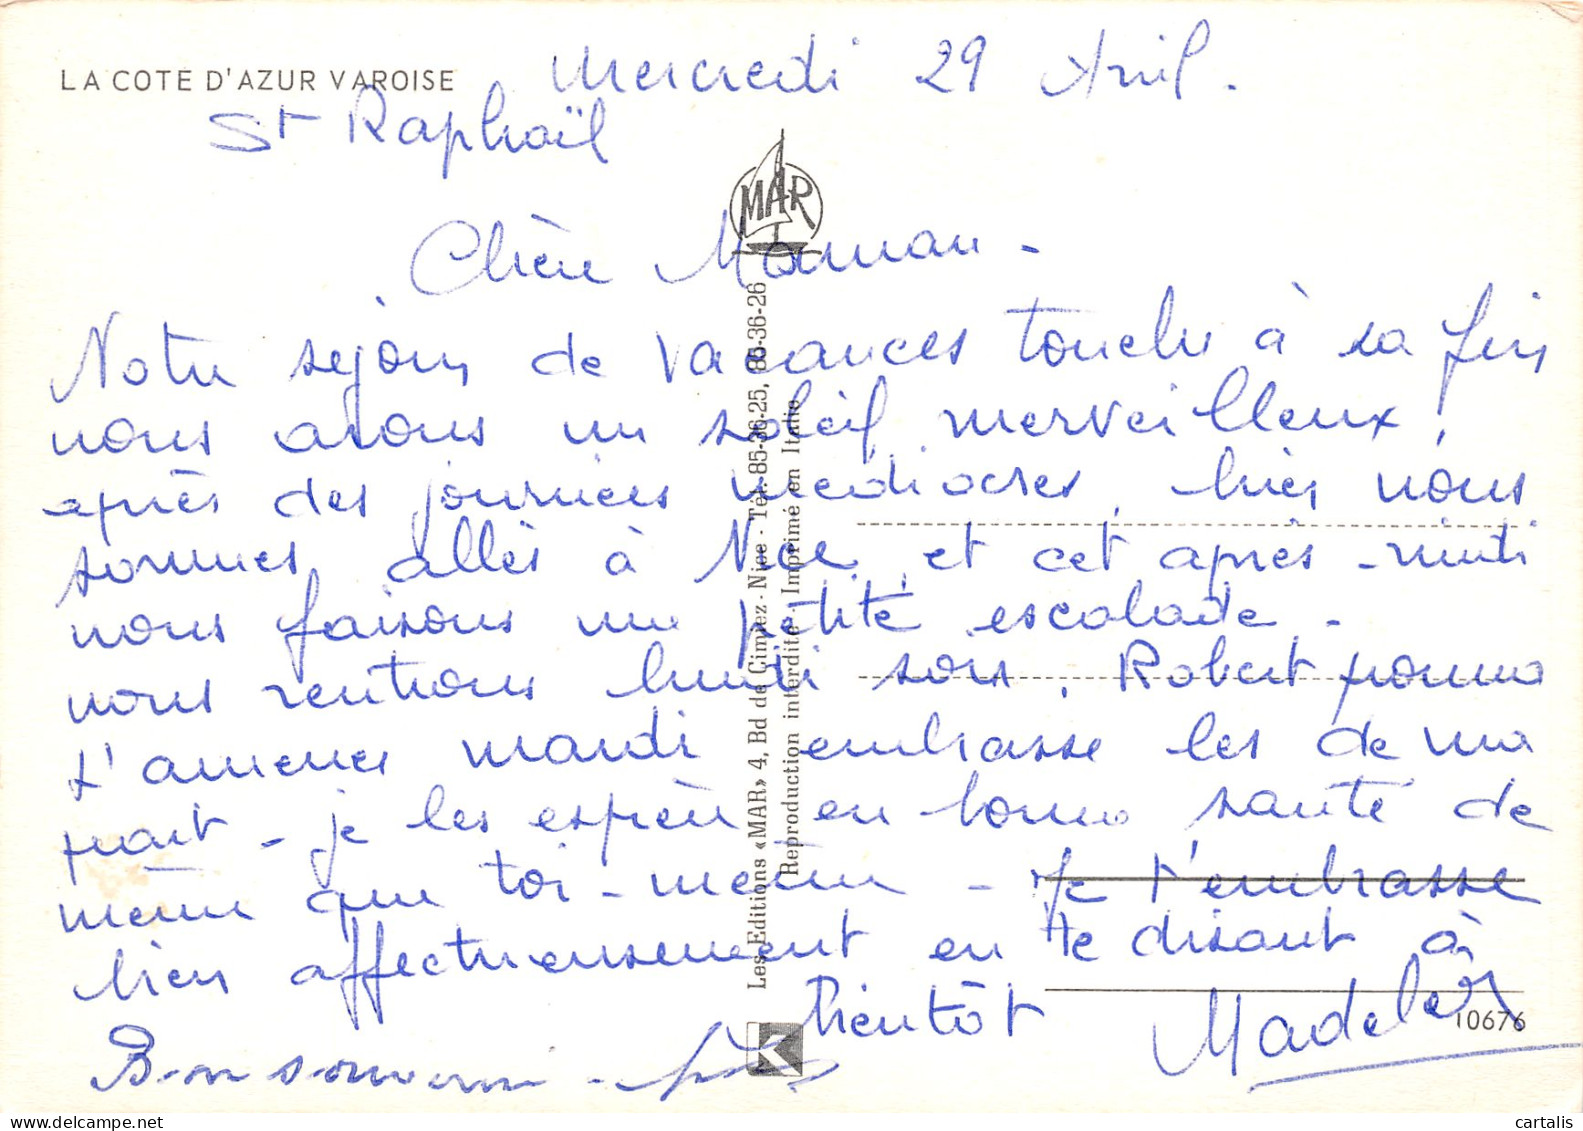 LA COTE D'AZUR VAROISE
Mercredi 29 Avril.
St Raphaël
MAR
Chère Maman -
Notre séjour de vacances touche à sa fin
nous avons un soleil merveilleux,
après des journées médiocres, hier nous
sommes allés à Nice, et cet après-midi
nous faisons une petite escalade -
nous rentrons lundi soir. Robert pourra
t'amener mardi embrasse les de ma
part - je les espère en bonne santé de
même que toi-même - Je t'embrasse
bien affectueusement en te disant à
bientôt Madeleine
Bon souvenir -
Les Editions «MAR» 4, Bd de Cimiez - Nice - Tél. 85-36-25, 85-36-26
Reproduction interdite - Imprimé en Italie
K
10676
cartalis